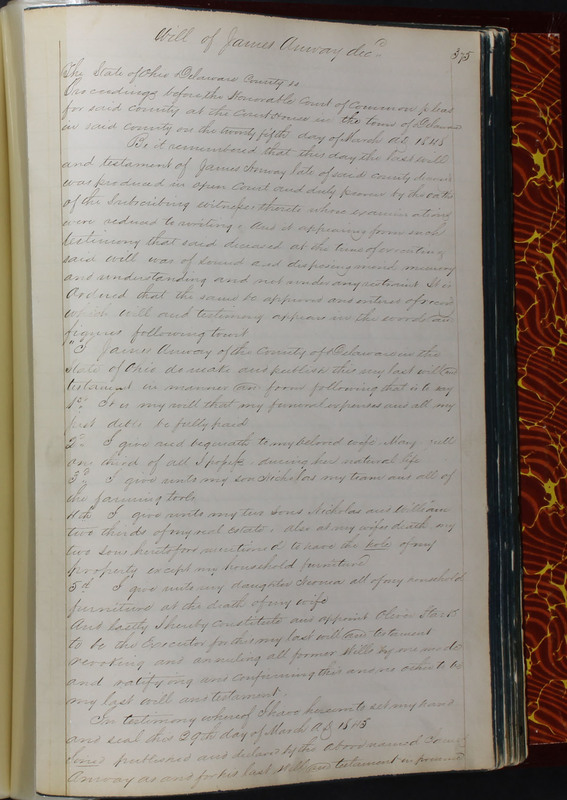 Will of James Anway decd
375
The State of Ohio Delaware County ss
Proceedings before the Honorable Court of Common pleas
for said county at the Court House in the town of Delaware
in said county on the twenty fifth day of March AD 1848
Be it remembered that this day the last will
and testament of James Anway late of said county
was produced in open Court and duly proven by the oaths
of the Subscribing witnesses thereto whose examinations
were reduced to writing & And it appearing from such
testimony that said deceased at the time of executing
said will was of sound and disposing mind memory
and understanding and not under any restraint It is
Ordered that the same be approved and
which will and testimony appears in the words and
figures following towit
"I James Anway of the County of Delaware in the
State of Ohio do make and publish this my last will and
testament in manner and form following that is to say
1st It is my will that my funeral expenses and all my
just debts be fully paid
2d I give and bequeath to my beloved wife Mary
one third of all I possess during her natural life
3d I give unto my son Nicholas my team and all of
the farming tools
4th I give unto my two sons Nicholas and William
two thirds of my real estate. Also at my wifes death my
two sons heretofore mentioned to have the hole of my
property except my household furniture
5d I give unto my daughter all of my household
furniture at the death of my wife
And lastly I hereby constitute and appoint Oliver Stark
to be the Executor for this my last will and testament
revoking and annuling all former Wills by me made
and ratifying and confirming this and no other to be
my last will and testament.
In testimony whereof I have hereunto set my hand
and seal this 29th day of March AD 1845
Signed published and declared by the above named James
Anway as and for his last Will and testament in presence